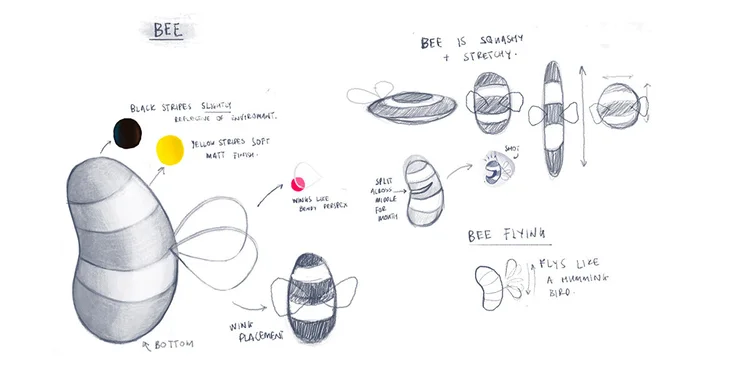 BEE
BLACK STRIPES SLIGHTLY
REFLECTIVE OF ENVIROMENT.
YELLOW STRIPES SOFT
MATT FINISH.
WINGS LIKE
BENDY PERSPEX
WING
PLACEMENT
BOTTOM
BEE IS SQUASHY
+ STRETCHY.
SPLIT
ACROSS
MIDDLE
FOR
MOUTH
SHOT
BEE FLYING
FLYS LIKE
A HUMMING
BIRD.